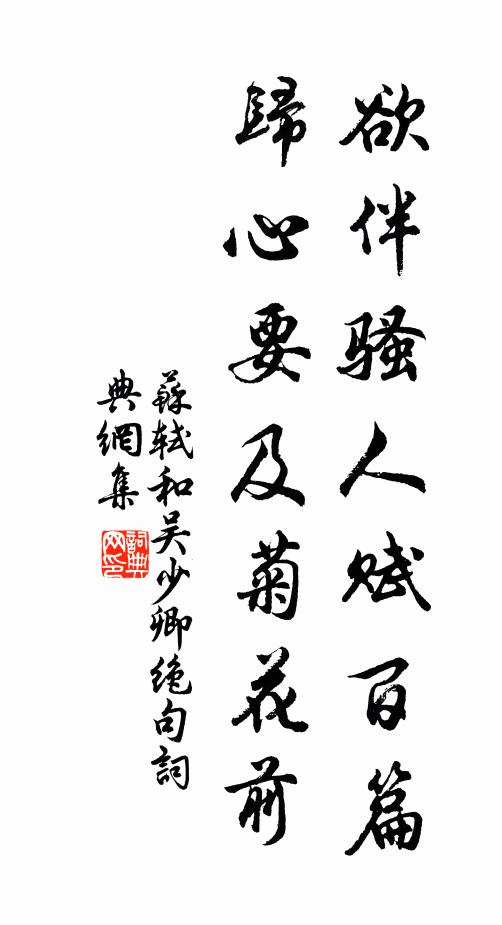 欲伴骚人赋百篇
歸心要及菊花前
蘇軾和吴少卿绝句詞
典網集
詞典
网印